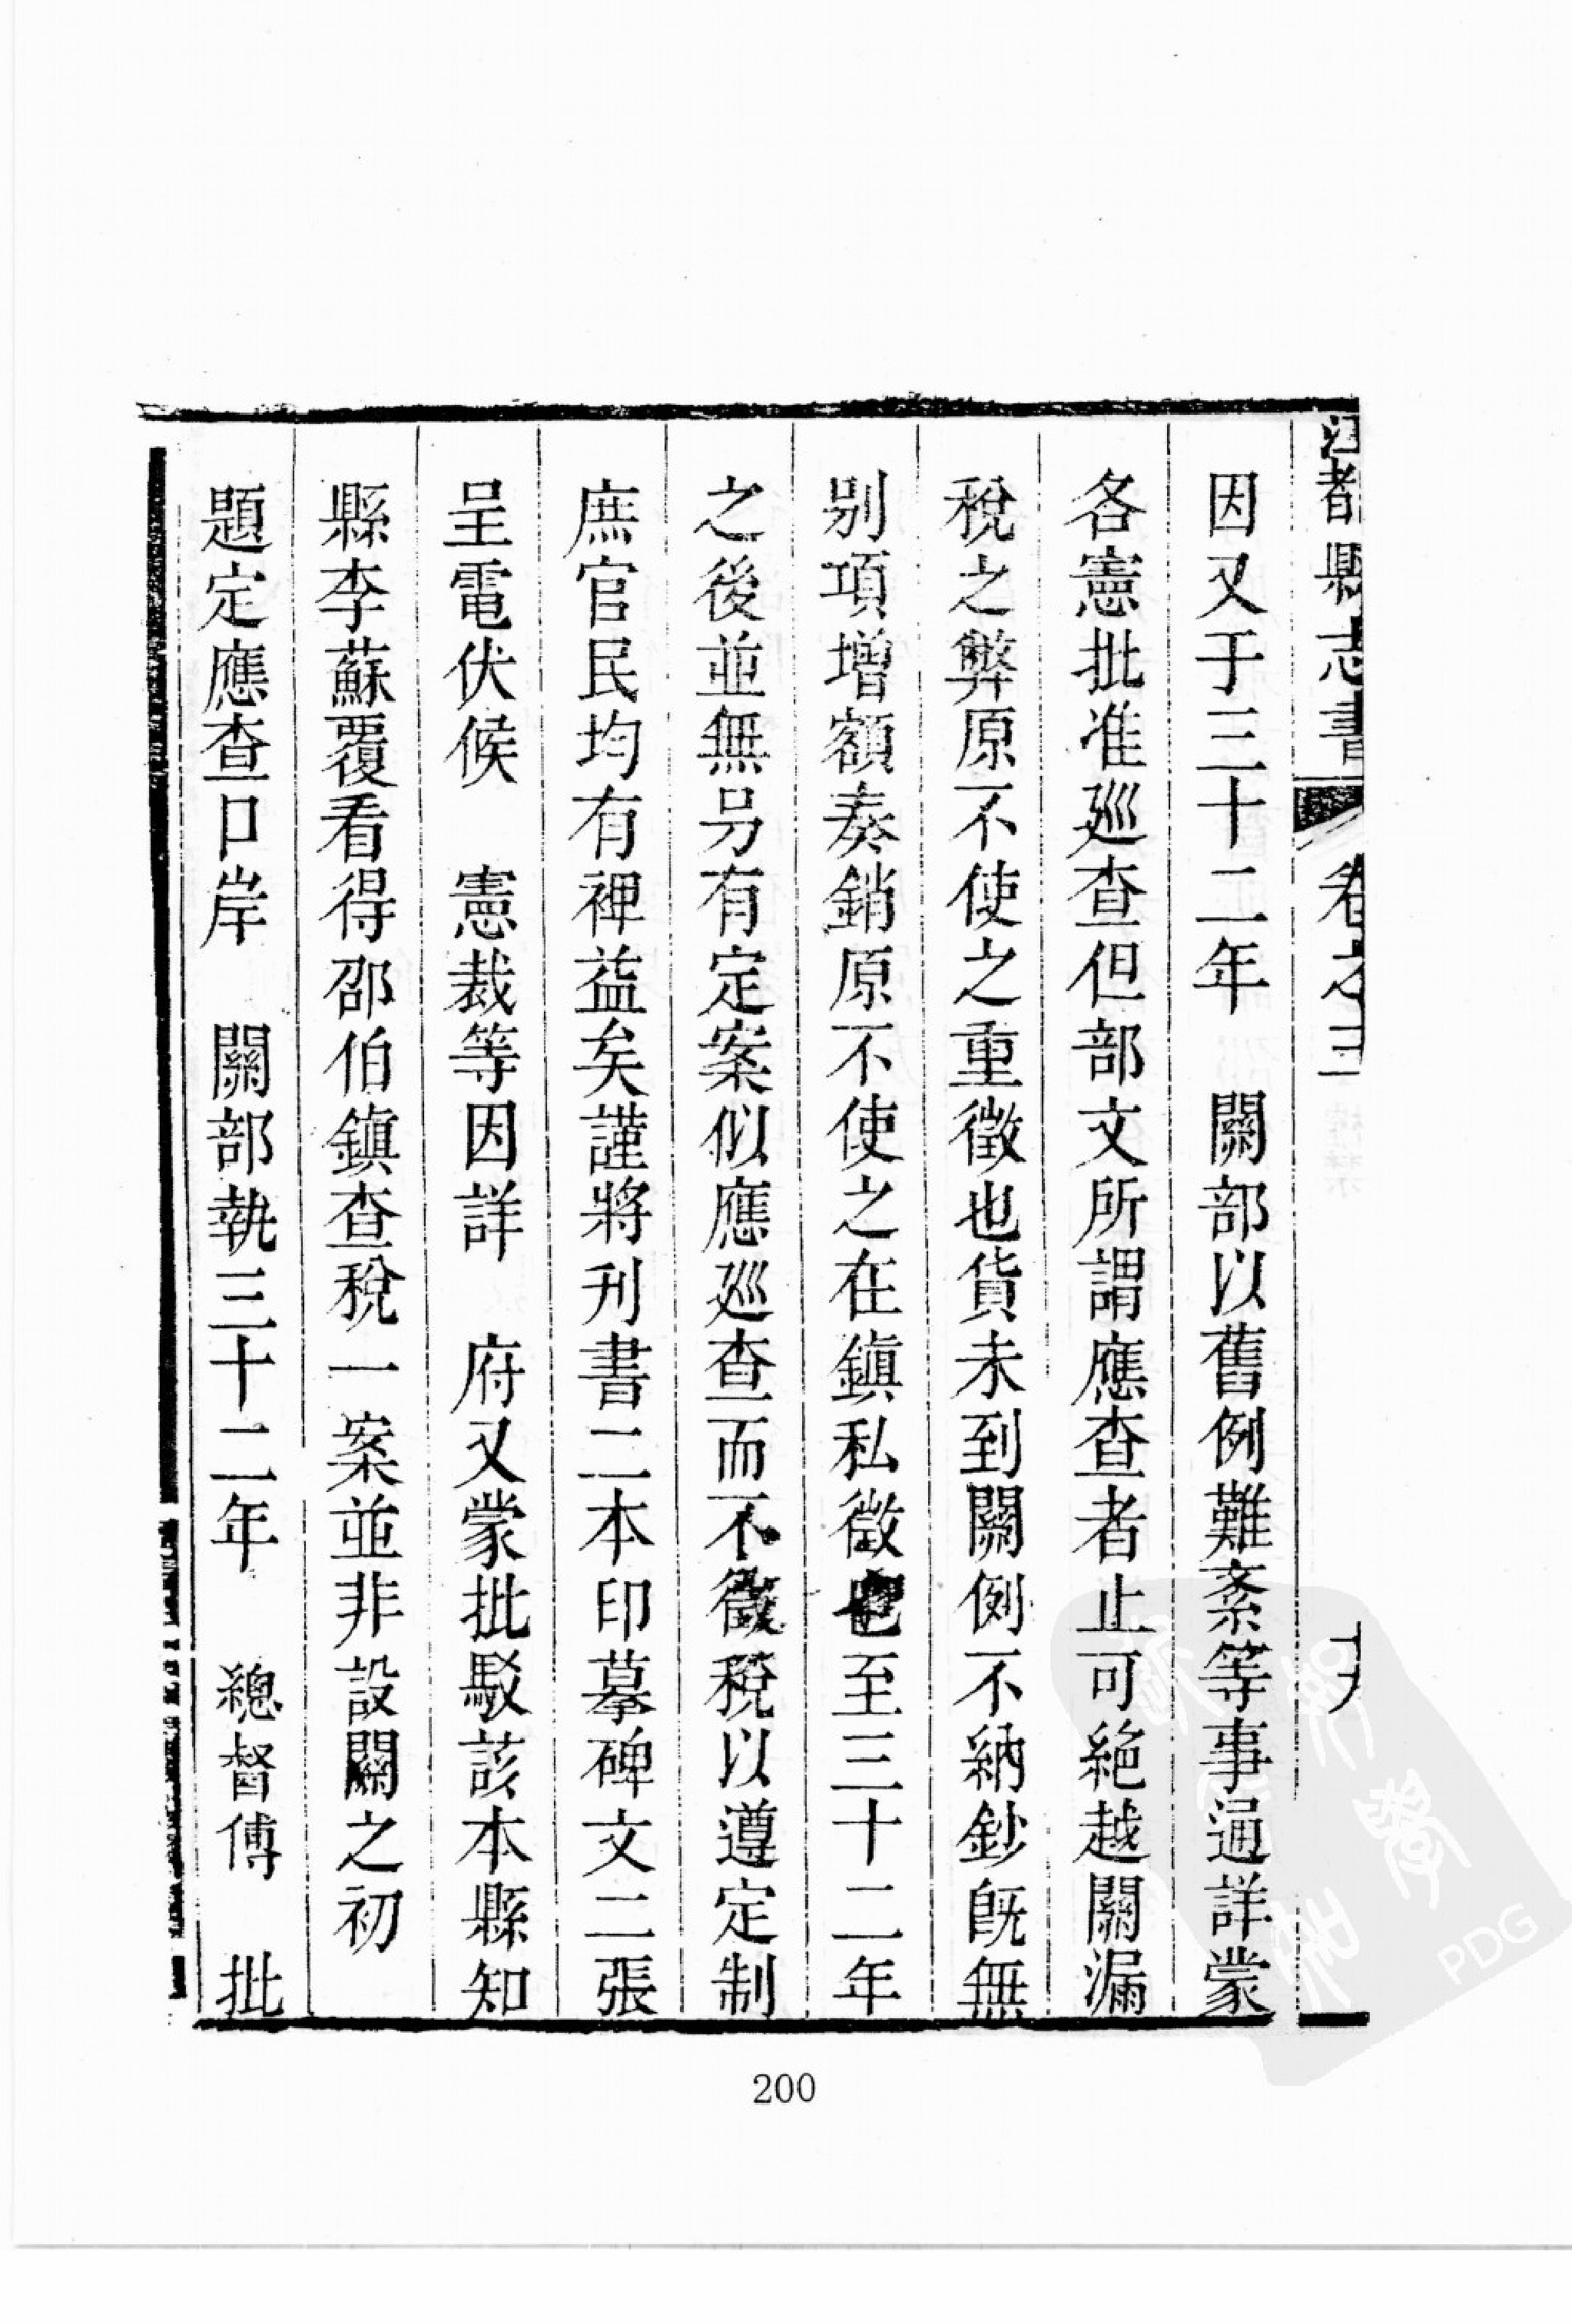 江都縣志書 卷之三 十六
因又于三十二年　關部以舊例難紊等事通詳蒙
各憲批准廵查但部文所謂應查者止可絶越關漏
稅之弊原不使之重徵也貨未到關例不納鈔旣無
别項增額奏銷原不使之在鎮私徵也至三十二年
之後並無另有定案似應廵查而不徵稅以遵定制
庶官民均有裨益矣謹將刋書二本印摹碑文二張
呈電伏候　憲裁等因詳　府又蒙批駁該本縣知
縣李蘇覆看得邵伯鎮查稅一案並非設關之初
題定應查口岸　關部執三十二年　總督傅　批
200
PDG